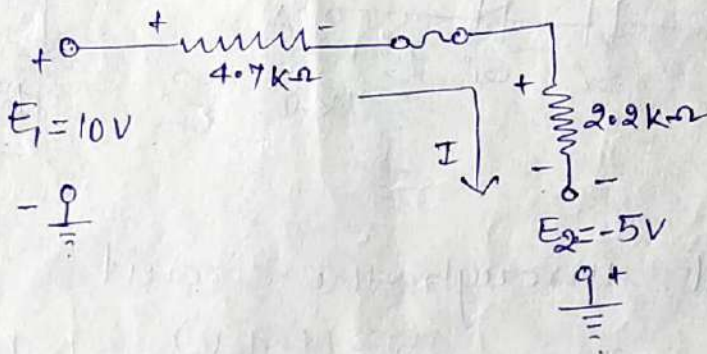 + + -
4.7kΩ
+
E₁=10V
I
2.2kΩ
- -
-
E₂=-5V
+